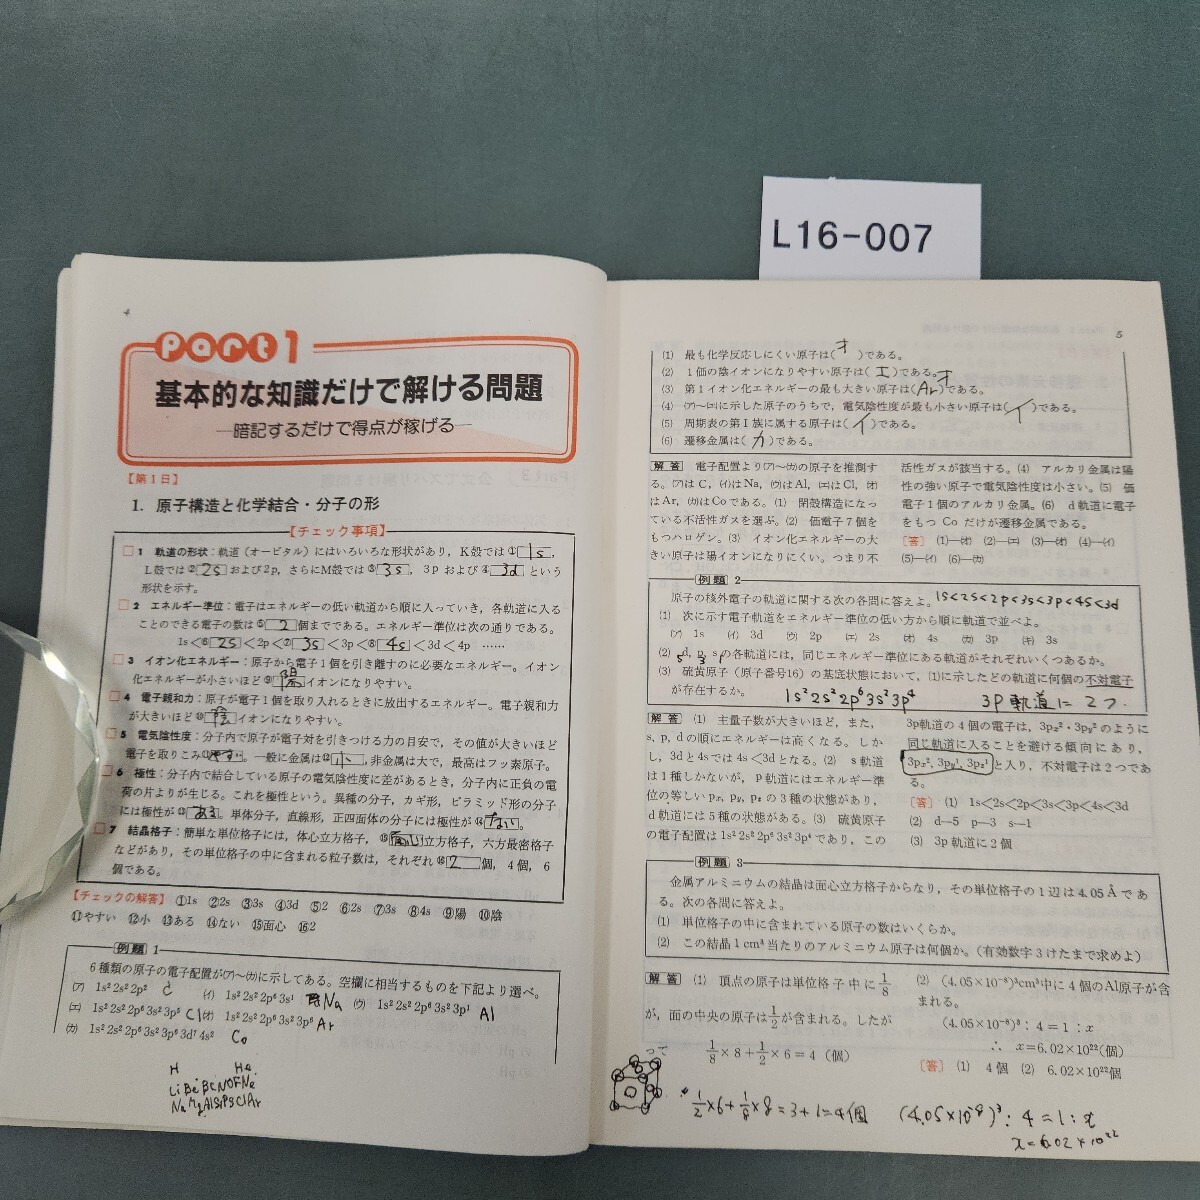 L16-007
4
Part 1
基本的な知識だけで解ける問題
—暗記するだけで得点が稼げる—
【第1日】
1. 原子構造と化学結合・分子の形
【チェック事項】
□1 軌道の形状：軌道（オービタル）にはいろいろな形状があり，K殻では① 1s ，
L殻では② 2s および2p，さらにM殻では③ 3s ，3pおよび④ 3d という
形状を示す。
□2 エネルギー準位：電子はエネルギーの低い軌道から順に入っていき，各軌道に入る
ことのできる電子の数は⑤ 2 個までである。エネルギー準位は次の通りである。
1s＜⑥ 2s ＜2p＜⑦ 3s ＜3p＜⑧ 4s ＜3d＜4p ……
□3 イオン化エネルギー：原子から電子1個を引き離すのに必要なエネルギー。イオン
化エネルギーが小さいほど⑨ 陽 イオンになりやすい。
□4 電子親和力：原子が電子1個を取り入れるときに放出するエネルギー。電子親和力
が大きいほど⑩ 陰 イオンになりやすい。
□5 電気陰性度：分子内で原子が電子対を引きつける力の目安で，その値が大きいほど
電子を取りこみ⑪ やすい 。一般に金属は⑫ 小 ，非金属は大で，最高はフッ素原子。
□6 極性：分子内で結合している原子の電気陰性度に差があるとき，分子内に正負の電
荷の片よりが生じる。これを極性という。異種の分子，カギ形，ピラミッド形の分子
には極性が⑬ ある 。単体分子，直線形，正四面体の分子には極性が⑭ ない 。
□7 結晶格子：簡単な単位格子には，体心立方格子，⑮ 面心 立方格子，六方最密格子
などがあり，その単位格子の中に含まれる粒子数は，それぞれ⑯ 2 個，4個，6
個である。
【チェックの解答】 ①1s ②2s ③3s ④3d ⑤2 ⑥2s ⑦3s ⑧4s ⑨陽 ⑩陰
⑪やすい ⑫小 ⑬ある ⑭ない ⑮面心 ⑯2
例題 1
6種類の原子の電子配置が(ア)～(カ)に示してある。空欄に相当するものを下記より選べ。
(ア) 1s² 2s² 2p² C (イ) 1s² 2s² 2p⁶ 3s¹ Na (ウ) 1s² 2s² 2p⁶ 3s² 3p¹ Al
(エ) 1s² 2s² 2p⁶ 3s² 3p⁵ Cl (オ) 1s² 2s² 2p⁶ 3s² 3p⁶ Ar
(カ) 1s² 2s² 2p⁶ 3s² 3p⁶ 3d⁷ 4s² Co
H He
Li Be B C N O F Ne
Na Mg Al Si P S Cl Ar
5
(1) 最も化学反応しにくい原子は( オ )である。
(2) 1価の陰イオンになりやすい原子は( エ )である。
(3) 第1イオン化エネルギーの最も大きい原子は( Ar )である。オ
(4) (ア)～(エ)に示した原子のうちで，電気陰性度が最も小さい原子は( イ )である。
(5) 周期表の第Ⅰ族に属する原子は( イ )である。
(6) 遷移金属は( カ )である。
解答 電子配置より(ア)～(カ)の原子を推測す
る。(ア)はC，(イ)はNa，(ウ)はAl，(エ)はCl，(オ)
はAr，(カ)はCoである。(1) 閉殻構造になっ
ている不活性ガスを選ぶ。(2) 価電子7個を
もつハロゲン。(3) イオン化エネルギーの大
きい原子は陽イオンになりにくい。つまり不
活性ガスが該当する。(4) アルカリ金属は陽
性の強い原子で電気陰性度は小さい。(5) 価
電子1個のアルカリ金属。(6) d軌道に電子
をもつ Co だけが遷移金属である。
［答］ (1)—(オ) (2)—(エ) (3)—(オ) (4)—(イ)
(5)—(イ) (6)—(カ)
例題 2
原子の核外電子の軌道に関する次の各問に答えよ。1s<2s<2p<3s<3p<4s<3d
(1) 次に示す電子軌道をエネルギー準位の低い方から順に軌道で並べよ。
(ア) 1s (イ) 3d (ウ) 2p (エ) 2s (オ) 4s (カ) 3p (キ) 3s
(2) d, p, sの各軌道には，同じエネルギー準位にある軌道がそれぞれいくつあるか。
5 3 1
(3) 硫黄原子（原子番号16）の基底状態において，(1)に示したどの軌道に何個の不対電子
が存在するか。 1s² 2s² 2p⁶ 3s² 3p⁴ 3P軌道に2つ.
解答 (1) 主量子数が大きいほど，また，
s, p, dの順にエネルギーは高くなる。しか
し，3dと4sでは4s＜3dとなる。(2) s軌道
は1種しかないが，p軌道にはエネルギー準
位の等しいpx, py, pzの3種の状態があり，
d軌道には5種の状態がある。(3) 硫黄原子
の電子配置は1s² 2s² 2p⁶ 3s² 3p⁴であり，この
3p軌道の4個の電子は，3px²・3py²のように
同じ軌道に入ることを避ける傾向にあり，
3px², 3py¹, 3pz¹と入り，不対電子は2つであ
る。
［答］ (1) 1s＜2s＜2p＜3s＜3p＜4s＜3d
(2) d—5 p—3 s—1
(3) 3p軌道に2個
例題 3
金属アルミニウムの結晶は面心立方格子からなり，その単位格子の1辺は4.05Åであ
る。次の各問に答えよ。
(1) 単位格子の中に含まれている原子の数はいくらか。
(2) この結晶1cm³当たりのアルミニウム原子は何個か。（有効数字3けたまで求めよ）
解答 (1) 頂点の原子は単位格子中に1/8
が，面の中央の原子は1/2が含まれる。したが
って
1/8×8+1/2×6=4（個）
(2) (4.05×10⁻⁸)³cm³中に4個のAl原子が含
まれる。
(4.05×10⁻⁸)³：4＝1：x
∴ x=6.02×10²²(個)
［答］ (1) 4個 (2) 6.02×10²²個
1/2×6+1/8×8=3+1=4個
(4.05×10⁻⁸)³：4=1：x
x=6.02×10²²